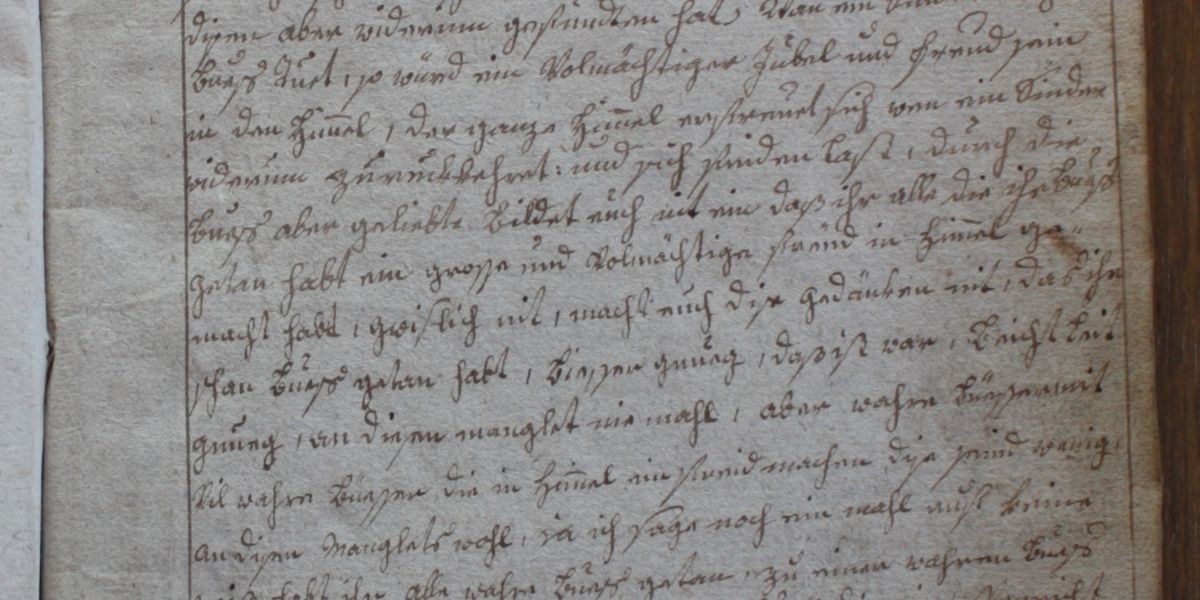 disen aber widerum gefunden hat, Wan ein
Buess Tuet, so würd ein Volmächtiger Jubel und freud sein
in den Himel, der ganze Himel erfreuet sich wen ein Sinder
widerum zuruckkehret: und sich finden Last, durch die
Buess aber geliebte Bildet euch nit ein daß ihr alle die ihr Buess
getan habt ein grosse und Volmächtige freud in Himel ge=
macht habt, gwislich nit, macht euch dise gedanken nit, das ihr
schan Buess getan habt, Biesser gnueg, daß ist war, Beicht Leit
gnueg, an diesen manglet nie mahl, aber wahre Büesser nit
Vil wahre Büesser die in Himel ein freid machen dise seind wenig,
an disen Manglets wohl, ja ich sage noch ein mahl auf keine
habt ihr alle wahre Buess getan, zu einer wahren Buess